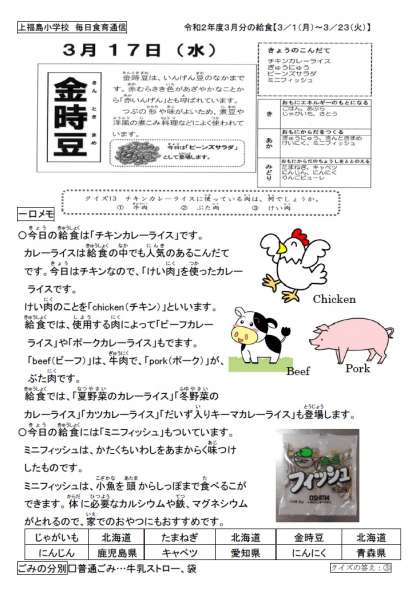 上福島小学校 毎日食育通信 令和2年度3月分の給食【3／1(月)～3／23(火)】
3月17日（水）
金時豆
きん とき まめ
金時豆は、いんげん豆のなかまで
す。赤むらさき色があざやかなことか
ら「赤いんげん」とも呼ばれています。
つぶの形や味がよいため、煮豆や
洋風の煮こみ料理などによく使われて
います。
今日は「ビーンズサラダ」
として登場します。
きょうのこんだて
チキンカレーライス
ぎゅうにゅう
ビーンズサラダ
ミニフィッシュ
き
おもにエネルギーのもとになる
ごはん、あぶら
じゃがいも、さとう
あか
おもにからだをつくる
ぎゅうにゅう、きんときまめ
けいにく、ミニフィッシュ
みどり
おもにからだのちょうしをととのえる
たまねぎ、キャベツ
にんじん、にんにく
りんごピューレ
クイズ13 チキンカレーライスに使っている肉は、何でしょうか。
① 牛肉 ② ぶた肉 ③ けい肉
一口メモ
○今日の給食は「チキンカレーライス」です。
カレーライスは給食の中でも人気のあるこんだて
です。今日はチキンなので、「けい肉」を使ったカレー
ライスです。
けい肉のことを「chicken（チキン）」といいます。
給食では、使用する肉によって「ビーフカレー
ライス」や「ポークカレーライス」もあります。
「beef（ビーフ）」は、牛肉で、「pork（ポーク）」が、
ぶた肉です。
給食では、「夏野菜のカレーライス」「冬野菜の
カレーライス」「カツカレーライス」「だいず入りキーマカレーライス」も登場します。
Chicken
Beef
Pork
○今日の給食には「ミニフィッシュ」もついています。
ミニフィッシュは、かたくちいわしをあまからく味つけ
したものです。
ミニフィッシュは、小魚を頭からしっぽまで食べるこが
できます。体に必要なカルシウムや鉄、マグネシウム
がとれるので、家でのおやつにもおすすめです。
フィッシュ
じゃがいも 北海道 たまねぎ 北海道 金時豆 北海道
にんじん 鹿児島県 キャベツ 愛知県 にんにく 青森県
ごみの分別 □普通ごみ…牛乳ストロー、袋
クイズの答え：③